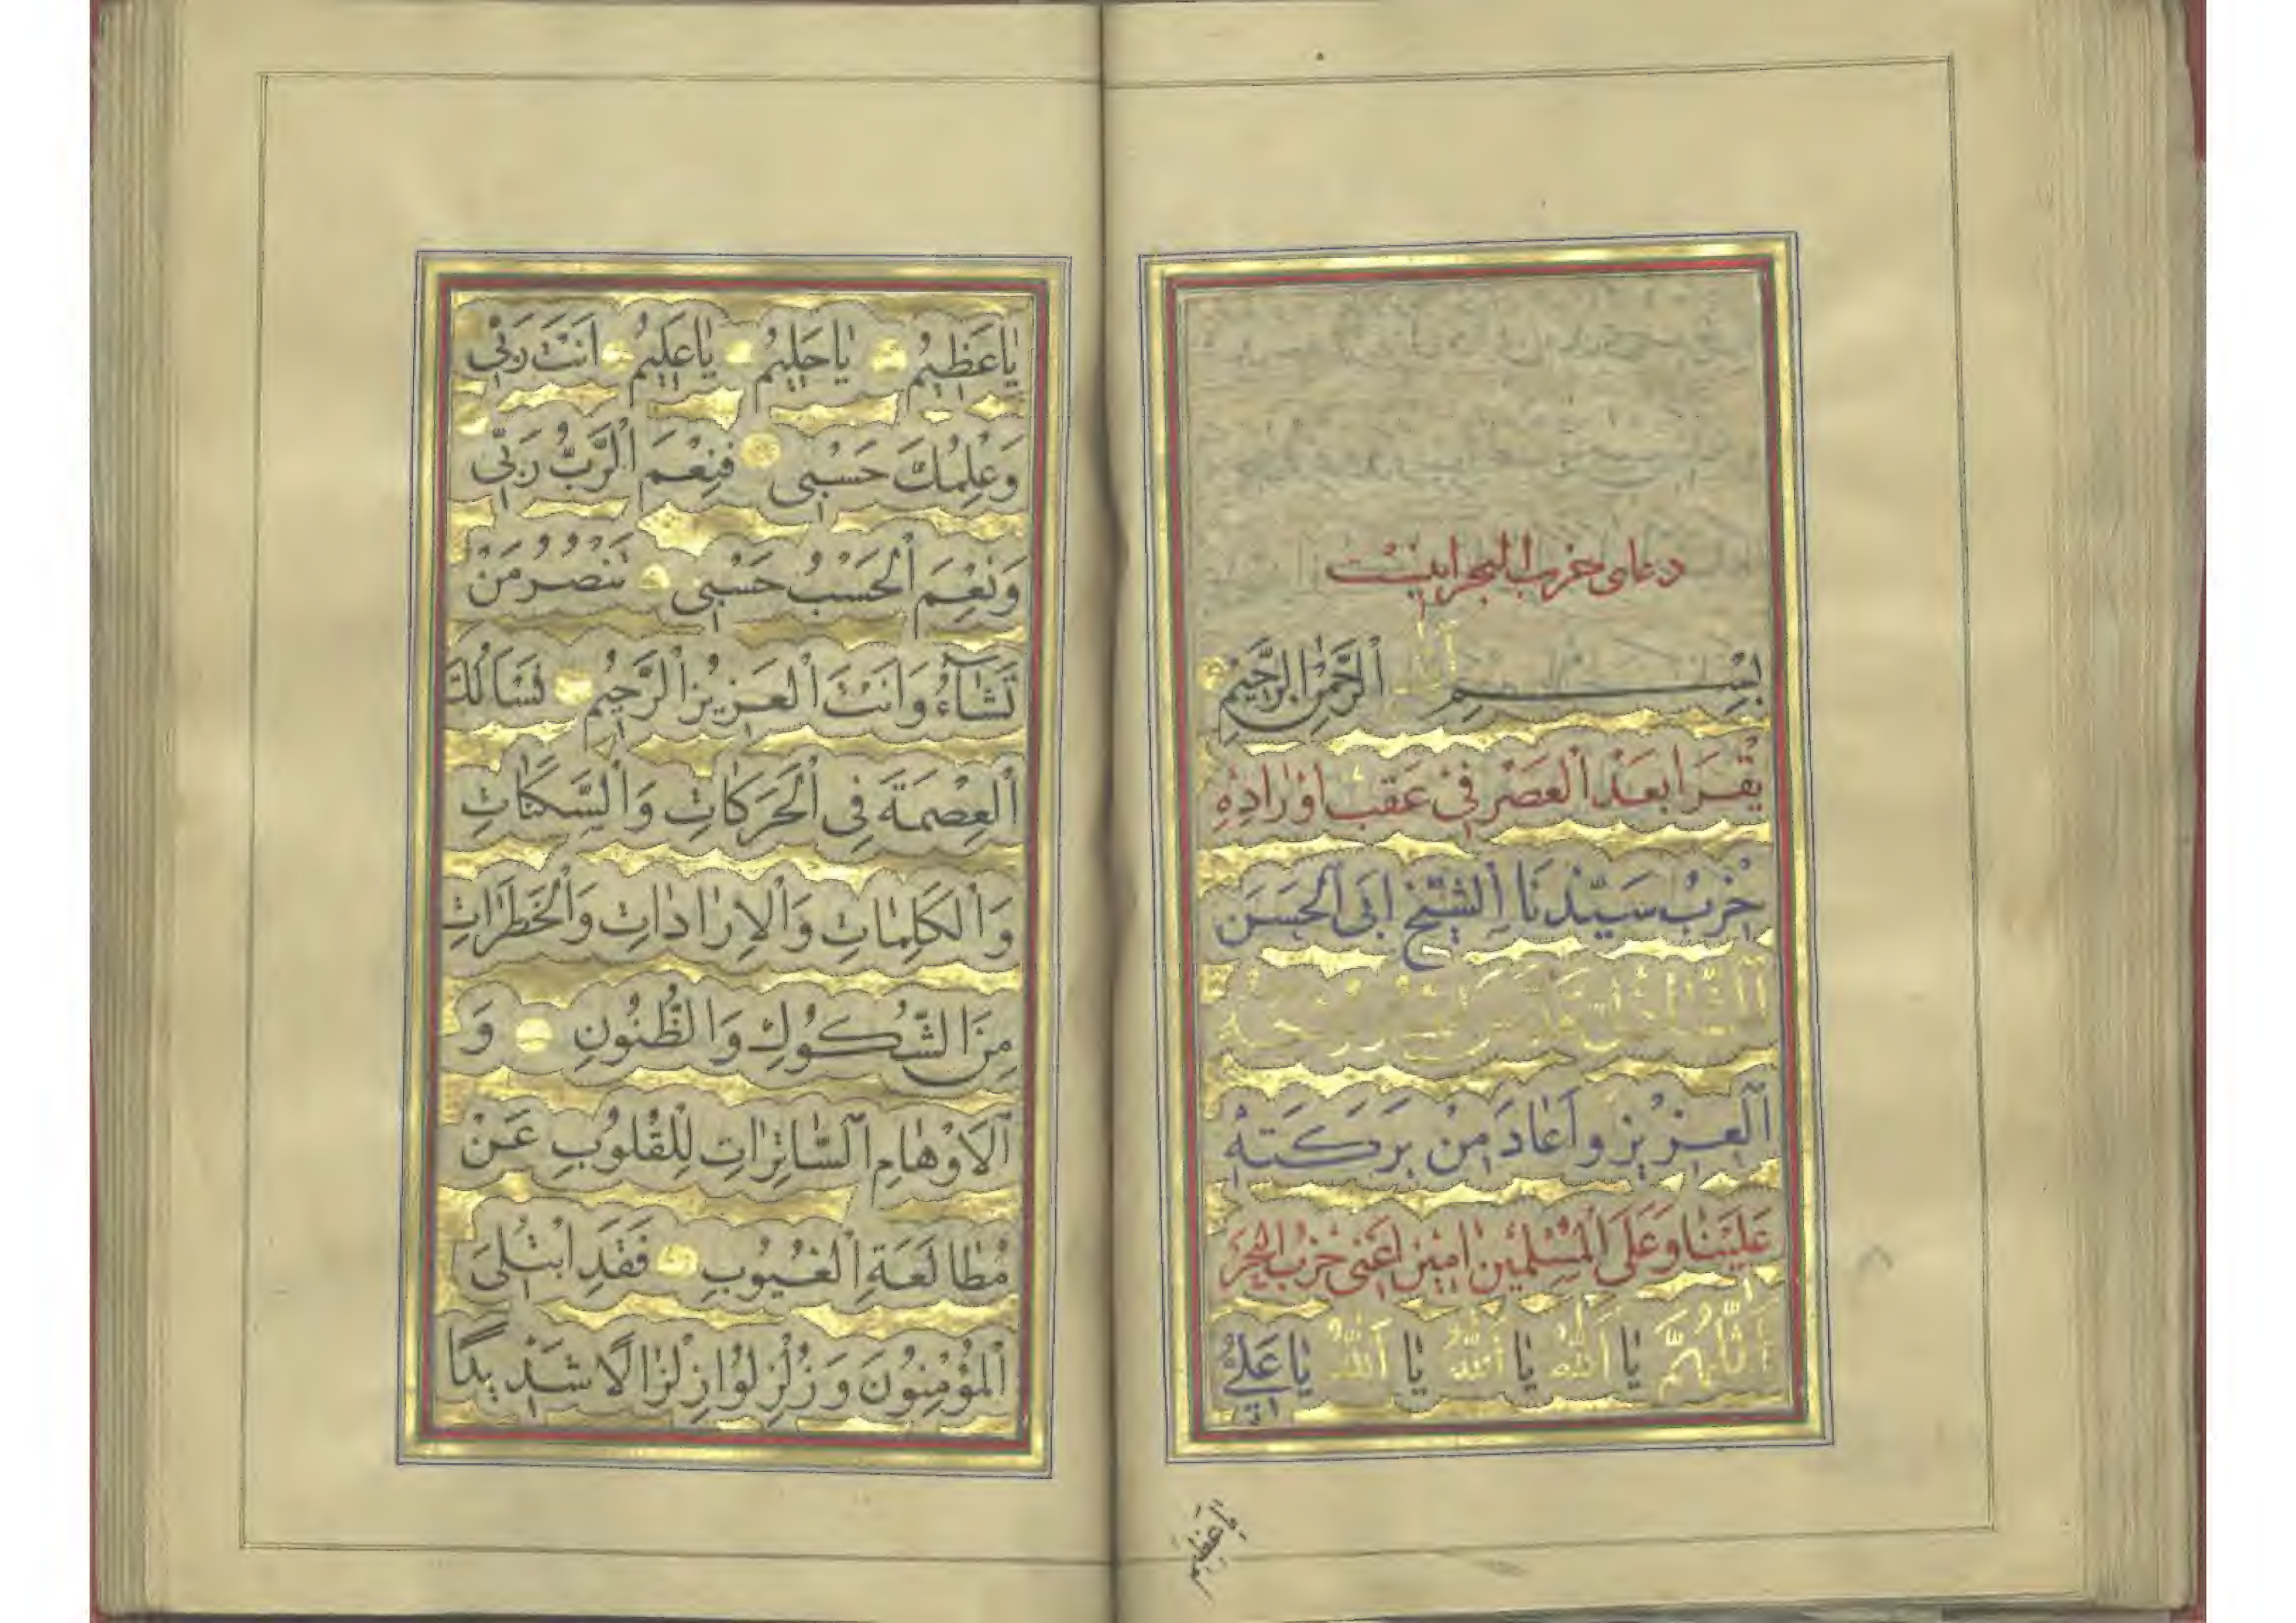 دعای حزب البحر اینست
بِسْمِ اللّٰهِ الرَّحْمٰنِ الرَّحِيمِ
يُقْرَا بَعْدَ الْعَصْرِ فِي عَقَبِ اَوْرَادِهِ
حِزْبُ سَيِّدِنَا الشَّيْخِ ابَي الْحَسَن
الْعَزِيزِ وَاَعَادَ مِنْ بَرَكَتِهْ
عَلَيْنَا وَعَلَى الْمُسْلِمِينَ امِينَ اَعْنى حِزْبُ الْبَحْرِ
اَللّٰهُمَّ يَا اَللّٰهُ يَا اَللّٰهُ يَا اَللّٰهُ يَا عَلِيُّ
يا عظيم
يَا عَظِيمُ يَا حَلِيمُ يَا عَلِيمُ اَنْتَ رَبّي
وَعِلْمُكَ حَسْبِي فَنِعْمَ الرَّبُّ رَبّي
وَنِعْمَ الْحَسْبُ حَسْبِي تَنْصُرُ مَنْ
تَشَاءُ وَاَنْتَ الْعَزِيزُ الرَّحِيمُ نَسْاَلُكَ
الْعِصْمَةَ فِي الْحَرَكَاتِ وَالسَّكَنَاتِ
وَالْكَلِمَاتِ وَالْاِرَادَاتِ وَالْخَطَرَاتِ
مِنَ الشُّكُوكِ وَالظُّنُونِ وَ
الْاَوْهَامِ السَّاتِرَاتِ لِلْقُلُوبِ عَنْ
مُطَالَعَةِ الْغُيُوبِ فَقَدِ ابْتُلِىَ
الْمُؤْمِنُونَ وَزُلْزِلُوا زِلْزَالًا شَدِيدًا